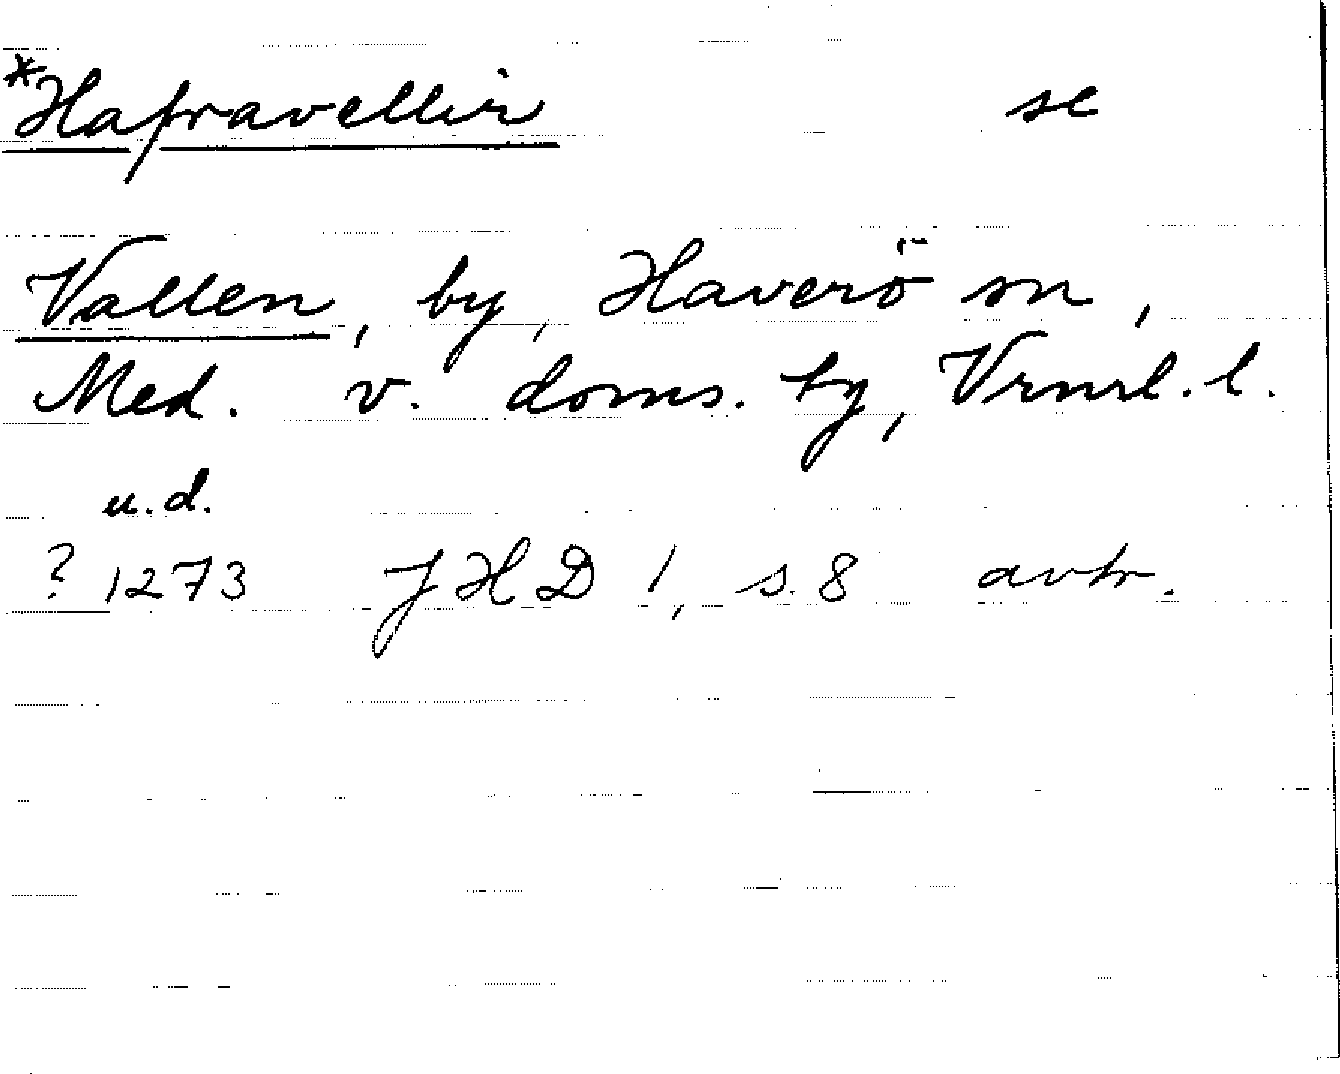 *Hafravellir se
Vallen, by, Haverö sn,
Med. v. doms. by, Vrnrl. l.
u.d.
? 1273 JHD 1, s. 8 avtr.